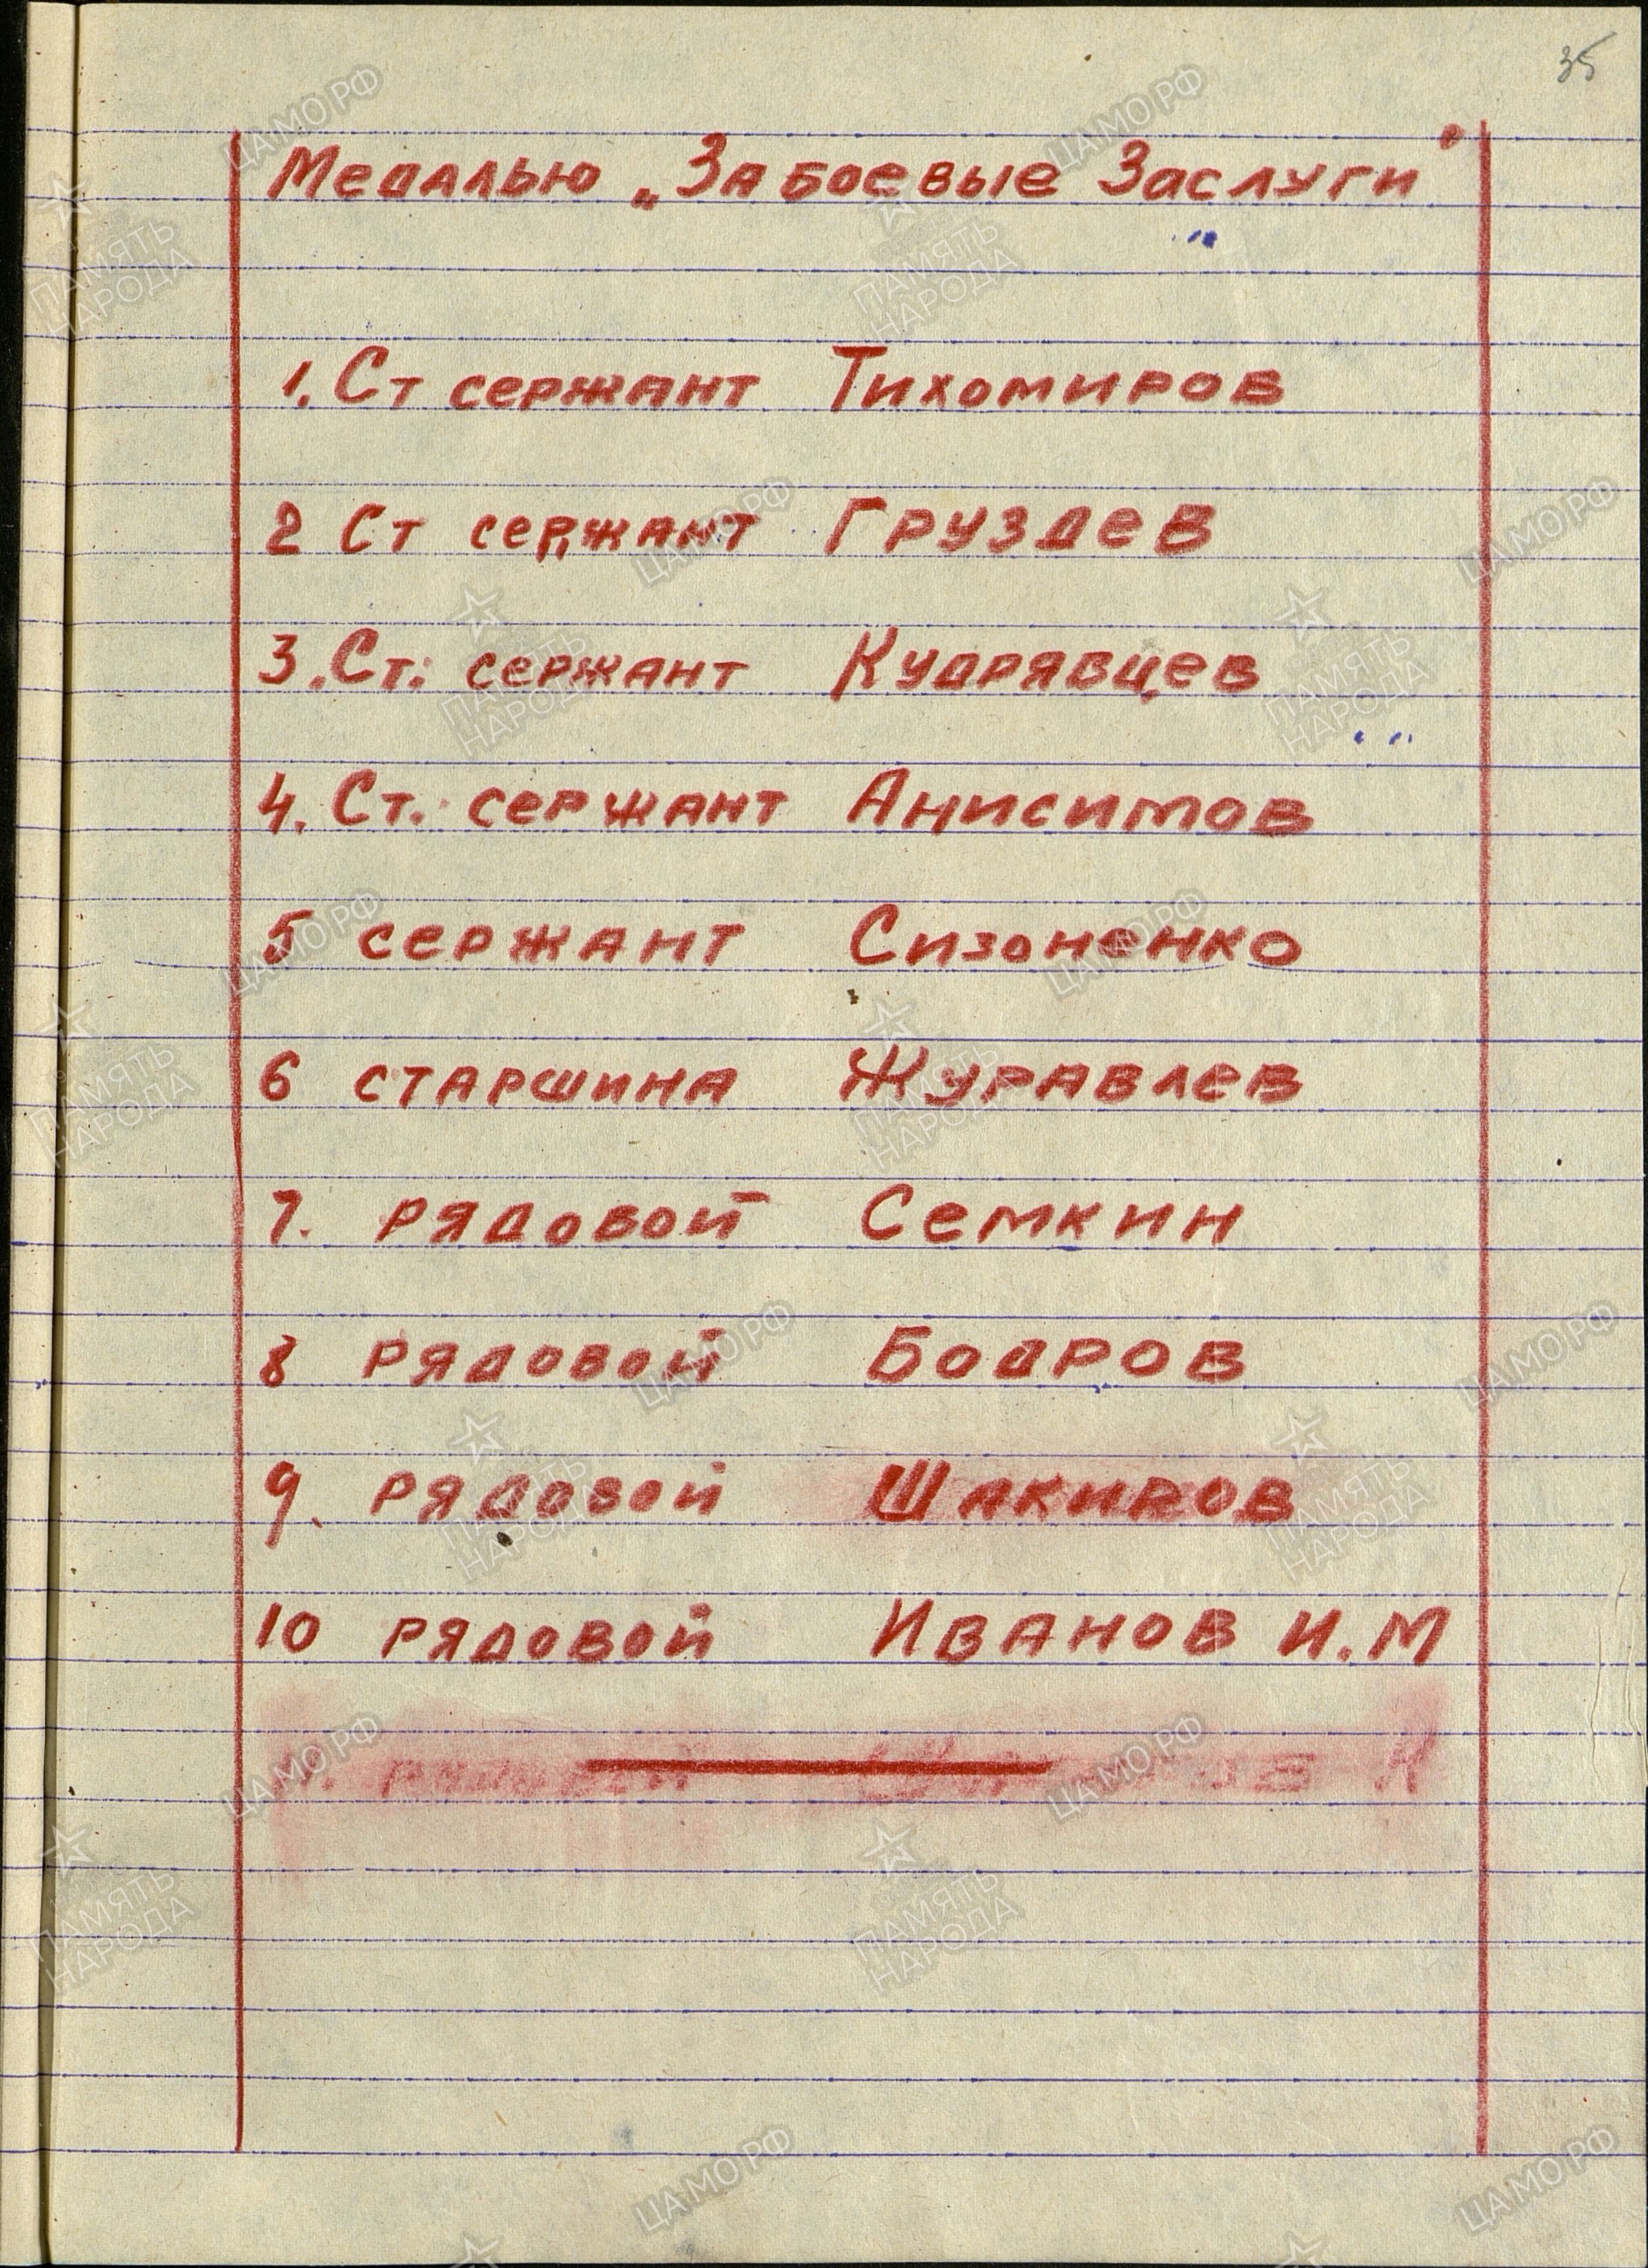 35
Медалью „За боевые Заслуги"
1. Ст сержант Тихомиров
2 Ст сержант Груздев
3. Ст. сержант Кудрявцев
4. Ст. сержант Анисимов
5 сержант Сизоненко
6 старшина Журавлев
7. рядовой Семкин
8 рядовой Бодров
9. рядовой Шакиров
10 рядовой Иванов И.М
рядовой